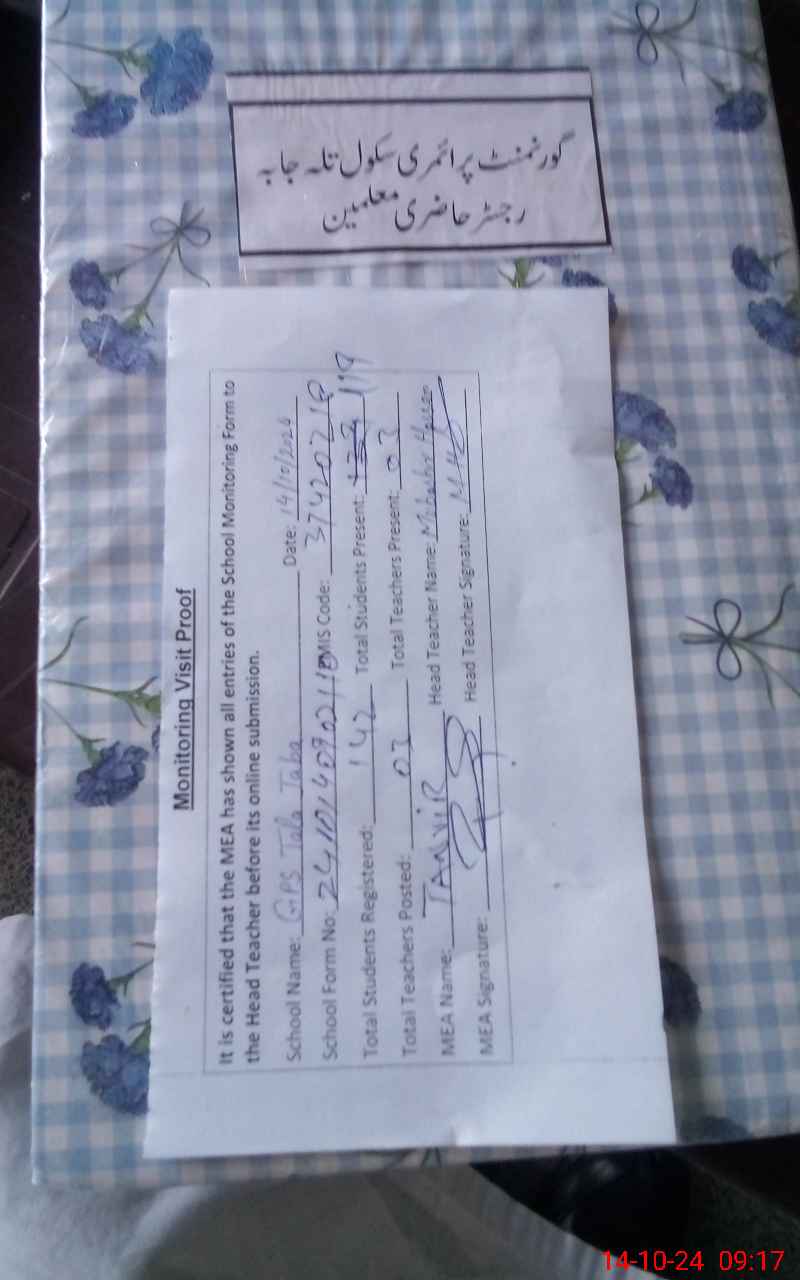 گورنمنٹ پرائمری سکول تلہ جابہ
رجسٹر حاضری معلمین
Monitoring Visit Proof
It is certified that the MEA has shown all entries of the School Monitoring Form to
the Head Teacher before its online submission.
School Name: GPS Tala Jaba Date: 14/10/2024
School Form No: EMIS Code: 37420218
Total Students Registered: 142 Total Students Present: 119
Total Teachers Posted: 03 Total Teachers Present: 03
MEA Name: TANVIR Head Teacher Name:
MEA Signature: Head Teacher Signature:
14-10-24 09:17